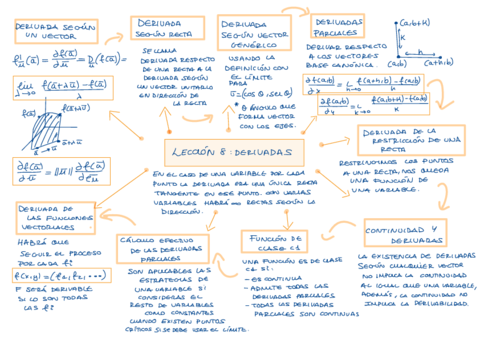 DERIVADA SEGÚN
UN VECTOR
f'_u(a) = ∂f(a)/∂u = D_u(f(a)) =
lim λ→0 f(a+λu) - f(a) / λ
f(a)
f(a+λu)
a
a+λu
∂f(a)/∂u = ||u|| ∂f(a)/∂e_u
DERIVADA
SEGÚN RECTA
SE LLAMA
DERIVADA RESPECTO
DE UNA RECTA A LA
DERIVADA SEGÚN
UN VECTOR UNITARIO
EN DIRECCIÓN DE
LA RECTA
DERIVADA
SEGÚN VECTOR
GENÉRICO
USANDO LA
DEFINICIÓN CON
EL LÍMITE
PARA
u=(cos θ, sen θ)
* θ ÁNGULO QUE
FORMA VECTOR
CON LOS EJES.
DERIVADAS
PARCIALES
DERIVAR RESPECTO
A LOS VECTORES
BASE CANÓNICA.
(a,b+k)
k
h
(a,b)
(a+h,b)
∂f(a,b)/∂x = L h→0 f(a+h,b)-f(a,b)/h
∂f(a,b)/∂y = L k→0 f(a,b+k)-f(a,b)/k
DERIVADA DE LA
RESTRICCIÓN DE UNA
RECTA
RESTRINGIMOS LOS PUNTOS
A UNA RECTA, NOS QUEDA
UNA FUNCIÓN DE
UNA VARIABLE.
LECCIÓN 8: DERIVADAS
EN EL CASO DE UNA VARIABLE POR CADA
PUNTO LA DERIVADA ERA UNA ÚNICA RECTA
TANGENTE EN ESE PUNTO. CON VARIAS
VARIABLES HABRÁ ∞ RECTAS SEGÚN LA
DIRECCIÓN.
DERIVADA DE
LAS FUNCIONES
VECTORIALES
HABRÁ QUE
SEGUIR EL PROCESO
POR CADA fi
f(x,y)=(f1, f2, ...)
F SERÁ DERIVABLE
SI LO SON TODAS
LAS fi
CÁLCULO EFECTIVO
DE LAS DERIVADAS
PARCIALES
SON APLICABLES LAS
ESTRATEGIAS DE
UNA VARIABLE SI
CONSIDERAS EL
RESTO DE VARIABLES
COMO CONSTANTES
CUANDO EXISTEN PUNTOS
CRÍTICOS SI SE DEBE USAR EL LÍMITE.
FUNCIÓN DE
CLASE C1
UNA FUNCIÓN ES DE CLASE
C1 SI:
- ES CONTINUA
- ADMITE TODAS LAS
DERIVADAS PARCIALES
- TODAS LAS DERIVADAS
PARCIALES SON CONTINUAS
CONTINUIDAD Y
DERIVADAS
LA EXISTENCIA DE DERIVADAS
SEGÚN CUALQUIER VECTOR
NO IMPLICA LA CONTINUIDAD
AL IGUAL QUE UNA VARIABLE,
ADEMÁS, LA CONTINUIDAD NO
IMPLICA LA DERIVABILIDAD.